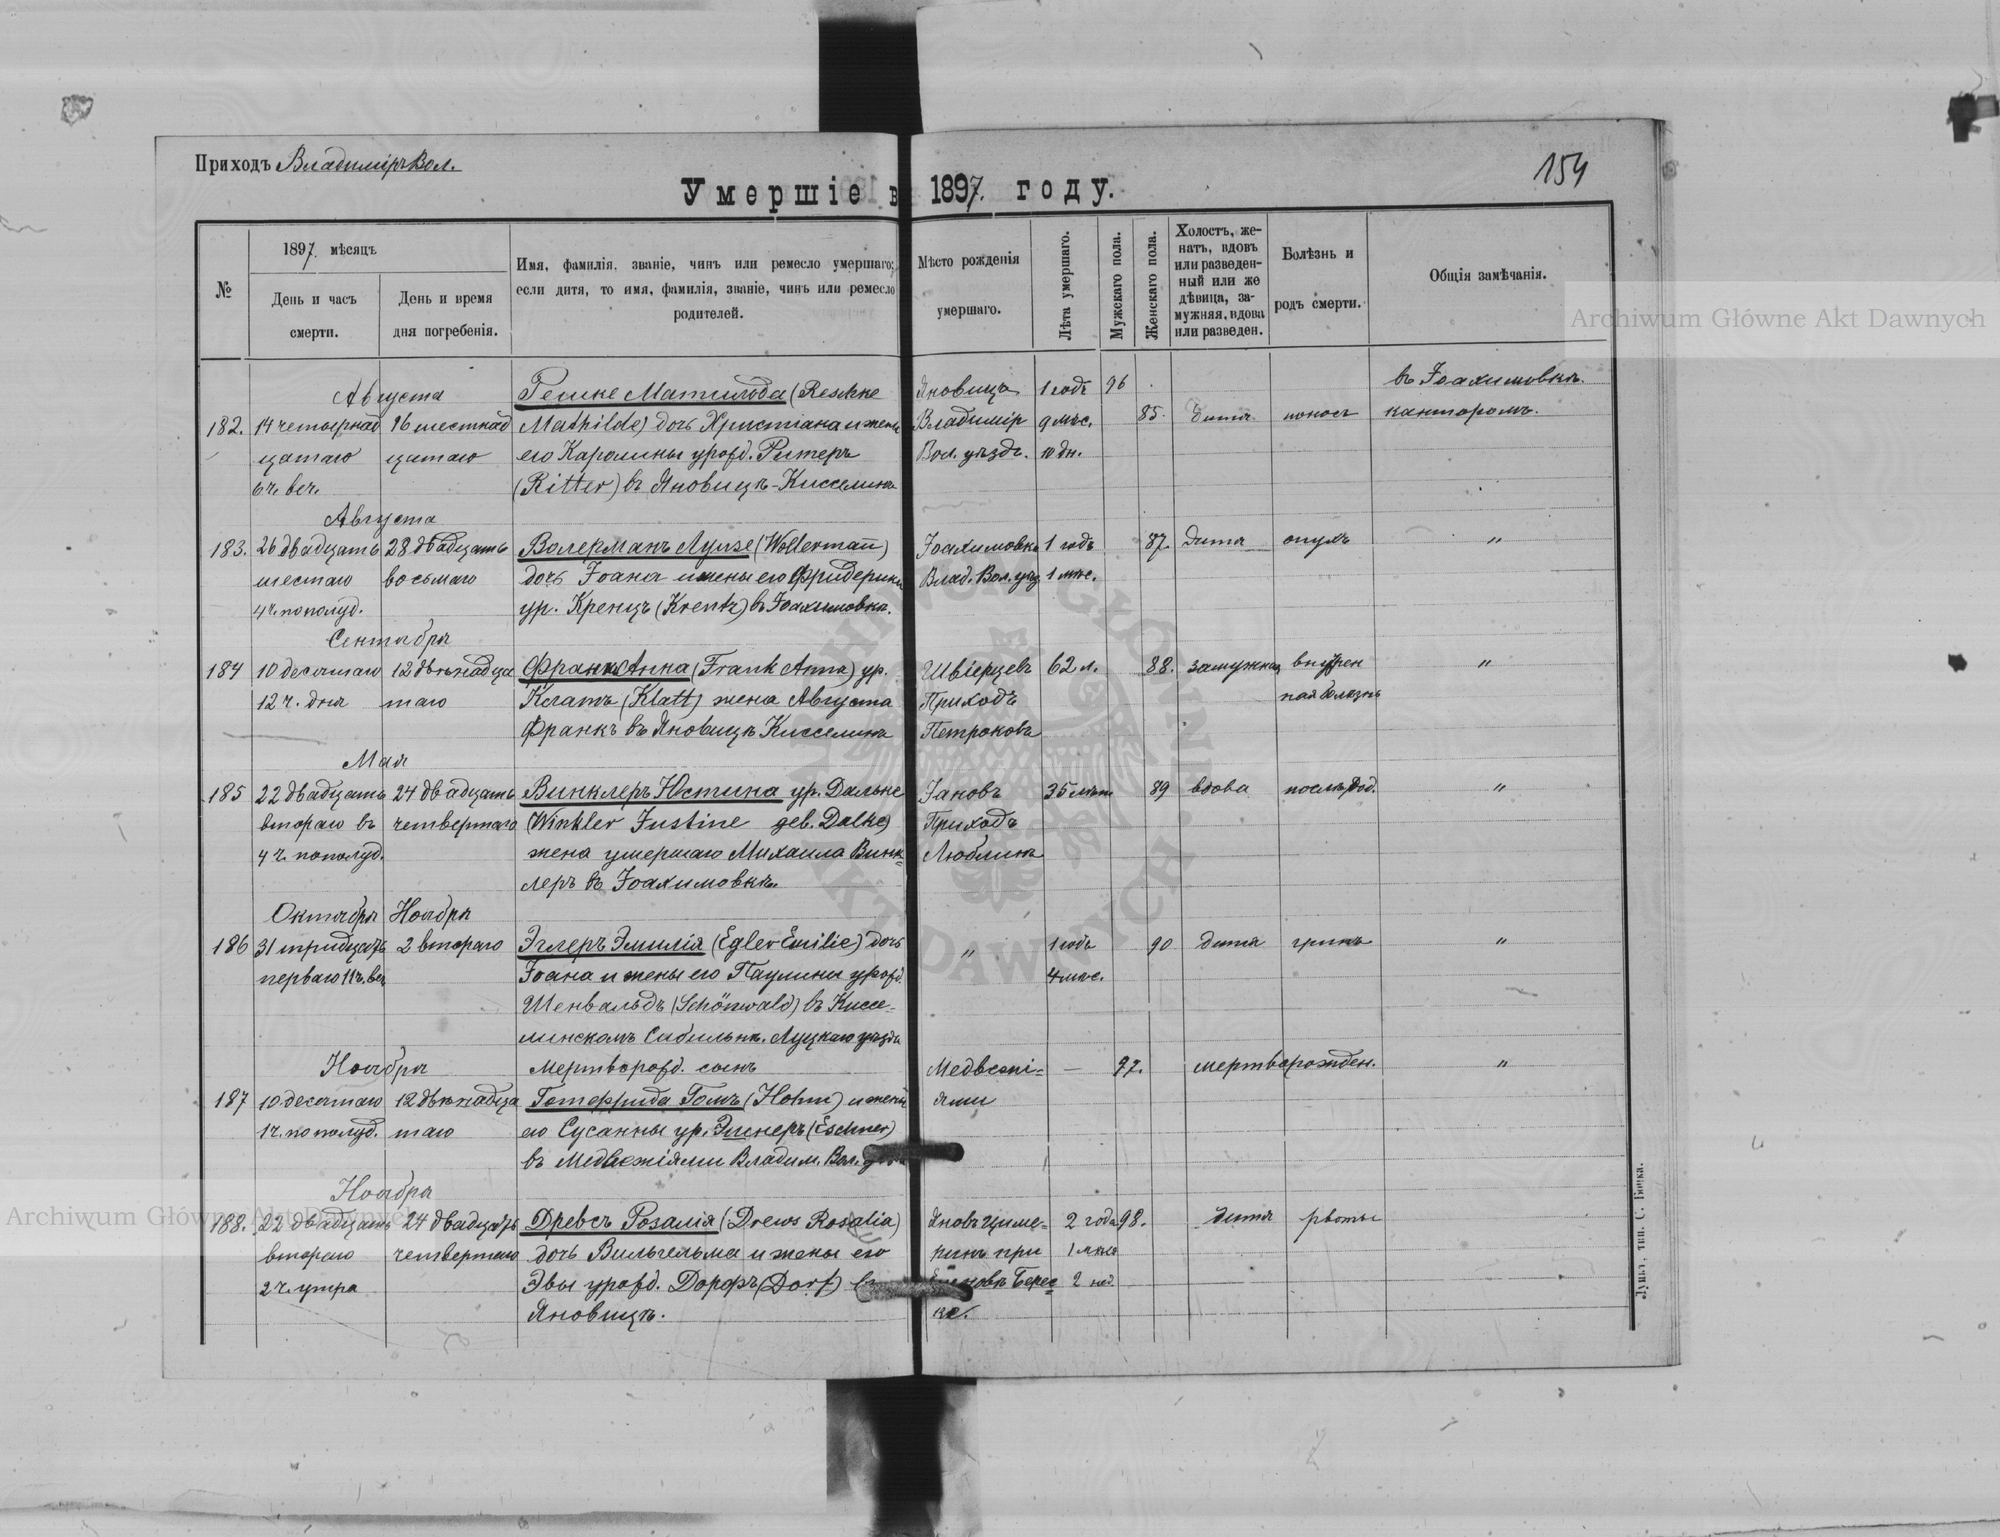 Приходъ Владиміръ Вол.
154
Умершіе в 1897. году.
№
1897. мѣсяцъ
День и часъ смерти.
День и время дня погребенія.
Имя, фамилія, званіе, чинъ или ремесло умершаго;
если дитя, то имя, фамилія, званіе, чинъ или ремесло
родителей.
Мѣсто рожденія умершаго.
Лѣта умершаго.
Мужскаго пола.
Женскаго пола.
Холостъ, же-
натъ, вдовъ
или разведен-
ный или же
дѣвица, за-
мужняя, вдова
или разведен.
Болѣзнь и родъ смерти.
Общія замѣчанія.
Августа Решке Матильда (Reschke Яновицъ 1 годъ 96 въ Іоахимовкѣ
182. 14 четырнад 16 шестнад Mathilde) дочь Христіана и жены Владимір 9 мѣс. 85. дитя поносъ канторомъ.
цатаго цатаго его Каролины урожд. Ритеръ Вол. уѣздъ. 10 дн.
6 ч. веч. (Ritter) въ Яновицѣ-Кисселинѣ
Августа
183. 26 двадцать 28 двадцать Волерманъ Луизе (Wollermann) Іоахимовкѣ 1 годъ 87. дитя опухъ "
шестаго восьмаго дочь Іоана и жены его Фридерики Влад. Вол. уѣз 1 мѣс.
4 ч. пополуд. ур. Кренцъ (Krentz) въ Іоахимовкѣ.
Сентября
184 10 десятаго 12 двѣнадца Франкъ Анна (Frank Anna) ур. 62 л. 88. замужняя внутрен "
12 ч. дня таго Клатъ (Klatt) жена Августа Приходъ ная болезнь
Франкъ въ Яновицѣ Кисселинѣ Петрокова
Мая
185 22 двадцать 24 двадцать Винклеръ Юстина ур. Дальке Яновъ 35 лѣт 89 вдова послѣ род. "
втораго въ четвертаго (Winkler Justine geb. Dalke) Приходъ
4 ч. пополуд. жена умершаго Михаила Винк= Люблинъ
леръ въ Іоахимовкѣ.
Октября Ноября
186 31 тридцать 2 втораго Эглеръ Эмилія (Egler Emilie) дочь " 1 годъ 90 дитя "
перваго 11 ч. веч. Іоана и жены его Паулины урожд. 4 мѣс.
Шенвальдъ (Schönwald) въ Киссе-
линскомъ Луцкаго уѣзда
Ноября Мертворожд. сынъ Медвежі= — 97. мертворожден. "
187 10 десятаго 12 двѣнадца Готфрида Гомъ (Hohm) и жены ями
1 ч. пополуд. таго его Сусанны ур. Эшнеръ (Eschner)
въ Медвежіями Владим. Вол.
Ноября
188. 22 двадцать 24 двадцать Древсъ Розалія (Drews Rosalia) 2 года 98. дитя рвоты
втораго четвертаго дочь Вильгельма и жены его при 1 мѣс
2 ч. утра Эвы урожд. Дорфъ (Dorf) 2 нед.
Яновицѣ.
Луцкъ, тип. С. Бонка.
Archiwum Główne Akt Dawnych
Archiwum Główne Akt Dawnych
ARCHIWUM GŁÓWNE AKT DAWNYCH